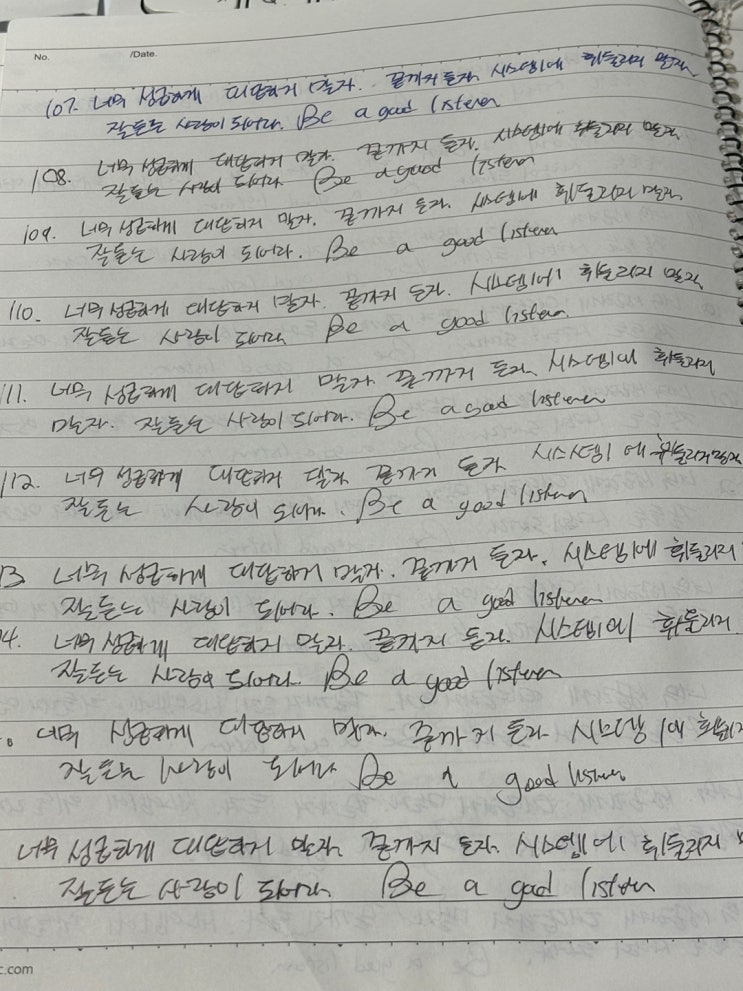 No. /Date.
107. 너무 성급하게 대답하지 말자. 끝까지 듣자. 시스템에 휘둘리지 말자.
잘듣는 사람이 되어라. Be a good listener
108. 너무 성급하게 대답하지 말자. 끝까지 듣자. 시스템에 휘둘리지 말자.
잘듣는 사람이 되어라. Be a good listener
109. 너무 성급하게 대답하지 말자. 끝까지 듣자. 시스템에 휘둘리지 말자.
잘듣는 사람이 되어라. Be a good listener
110. 너무 성급하게 대답하지 말자. 끝까지 듣자. 시스템에 휘둘리지 말자.
잘듣는 사람이 되어라. Be a good listener
111. 너무 성급하게 대답하지 말자. 끝까지 듣자. 시스템에 휘둘리지
말자. 잘듣는 사람이 되어라. Be a good listener
112. 너무 성급하게 대답하지 말자. 끝까지 듣자. 시스템에 휘둘리지 말자
잘듣는 사람이 되어라. Be a good listener
13. 너무 성급하게 대답하지 말자. 끝까지 듣자. 시스템에 휘둘리지
잘듣는 사람이 되어라. Be a good listener
4. 너무 성급하게 대답하지 말자. 끝까지 듣자. 시스템에 휘둘리지
잘듣는 사람이 되어라. Be a good listener
너무 성급하게 대답하지 말자. 끝까지 듣자. 시스템에 휘둘리지
잘듣는 사람이 되어라 Be a good listener
너무 성급하게 대답하지 말자. 끝까지 듣자. 시스템에 휘둘리지
잘듣는 사람이 되어라 Be a good listener
.com